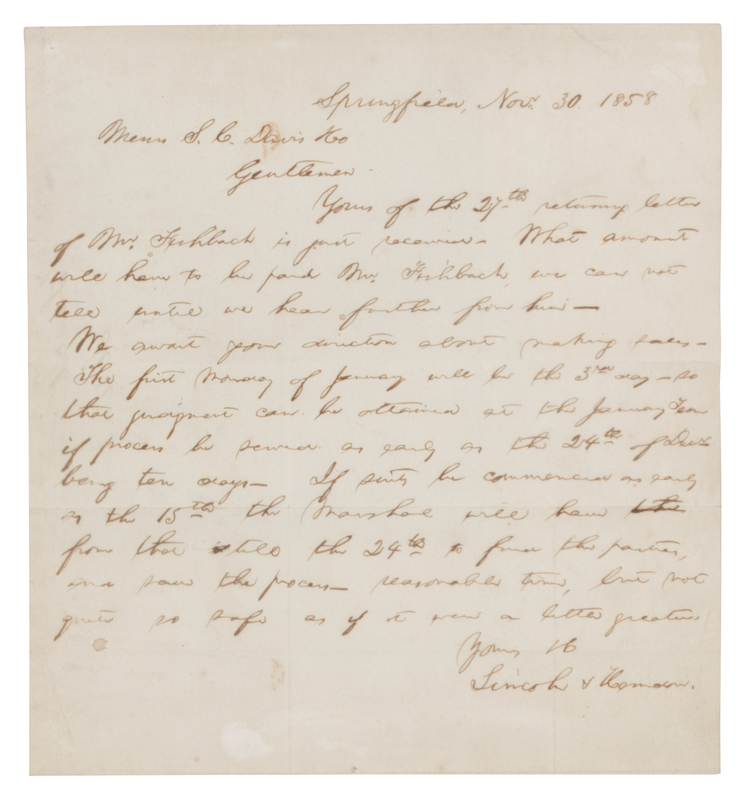 Springfield, Novr. 30. 1858
Messrs S. C. Davis & Co
Gentlemen.
Yours of the 27th returning letter
of Mr. Fishback is just received - What amount
will have to be paid Mr. Fishback, we can not
tell until we hear further from him -
We await your direction about making sales -
The first Monday of January will be the 3rd day - so
that judgment can be obtained at the January Term
if process be served as early as the 24th of Decr
being ten days - If suits be commenced as early
as the 15th the Marshal will have the
from that till the 24th to find the parties,
and serve the process - reasonable time, but not
quite so safe as if it were a little greater.
Yours &c
Lincoln & Herndon.